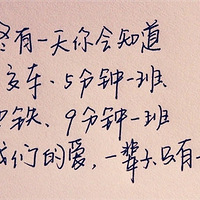 终有一天你会知道
交车、5分钟一班
地铁、9分钟一班
我们的爱,一辈子只有一